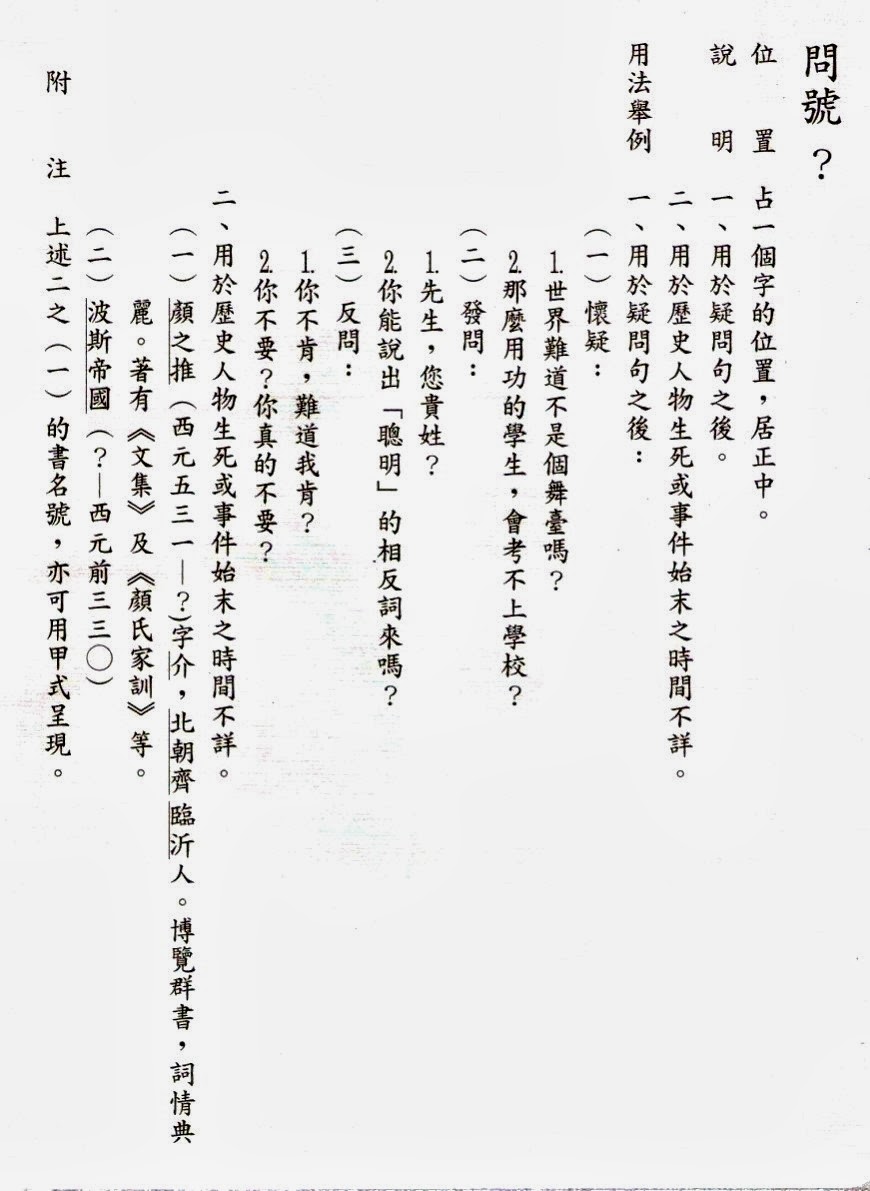 問號？
位置　占一個字的位置，居正中。
說明　一、用於疑問句之後。
二、用於歷史人物生死或事件始末之時間不詳。
用法舉例　一、用於疑問句之後：
（一）懷疑：
1.世界難道不是個舞臺嗎？
2.那麼用功的學生，會考不上學校？
（二）發問：
1.先生，您貴姓？
2.你能說出「聰明」的相反詞來嗎？
（三）反問：
1.你不肯，難道我肯？
2.你不要？你真的不要？
二、用於歷史人物生死或事件始末之時間不詳。
（一）顏之推（西元五三一—？）字介，北朝齊臨沂人。博覽群書，詞情典
麗。著有《文集》及《顏氏家訓》等。
（二）波斯帝國（？—西元前三三〇）
附注　上述二之（一）的書名號，亦可用甲式呈現。